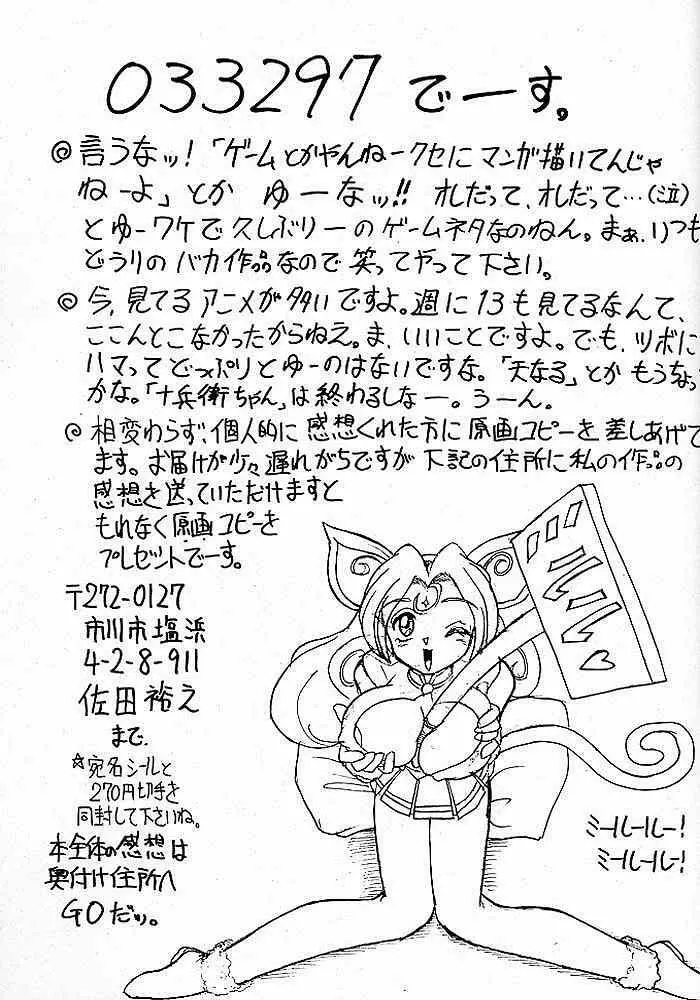 033297 でーす。
◎言うなッ!「ゲームとかやんねークセにマンガ描いてんじゃ
ねーよ」とか ゆーなッ!! オレだって、オレだって…(泣)
とゆーワケで久しぶりーのゲームネタなのねん。まぁ、いつも
どうりのバカ作品なので笑ってやって下さい。
◎今、見てるアニメが多いですよ。週に13も見てるなんて、
ここんとこなかったからねえ。ま、いいことですよ。でも、ツボに
ハマってどっぷりとゆーのはないですな。「天なる」とかもうな
かな。「十兵衛ちゃん」は終わるしなー。うーん。
◎相変わらず、個人的に感想くれた方に原画コピーを差しあげて
ます。お届けが少々遅れがちですが下記の住所に私の作品の
感想を送っていただけますと
もれなく原画コピーを
プレゼットでーす。
〒272-0127
市川市塩浜
4-2-8-911
佐田裕之
まで
☆宛名シールと
270円切手を
同封して下さいね。
本全体の感想は
奥付け住所へ
GOだッ。
ドルルル♡
ミールールー!
ミールールー!